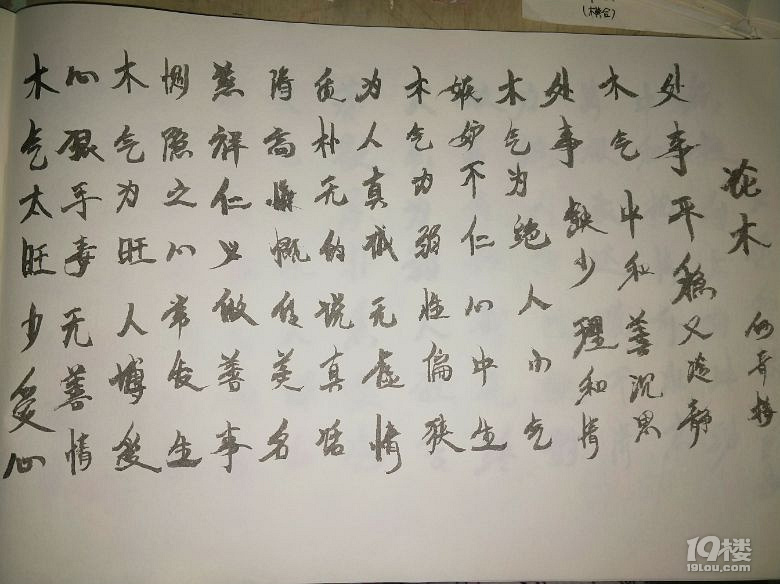 论木
何
处事平稳又静
木气中和善沉思
处事缺少理和情
木气为绝人小气
嫉妒不仁心中生
木气为弱性偏狭
为人真诚无虚情
质朴无的说真话
高慷慨传美名
慈祥仁义做善事
恻隐之心常发生
木气为旺人博爱
心狠手毒无善情
木气太旺少爱心
19楼
19lou.com